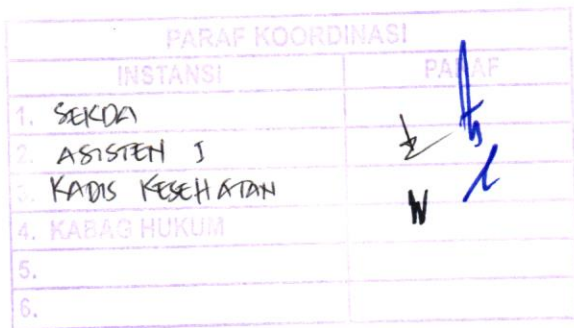 PARAF KOORDINASI
INSTANSI PARAF
1. SEKDA
2. ASISTEN I
3. KADIS KESEHATAN
4. KABAG HUKUM
5.
6.